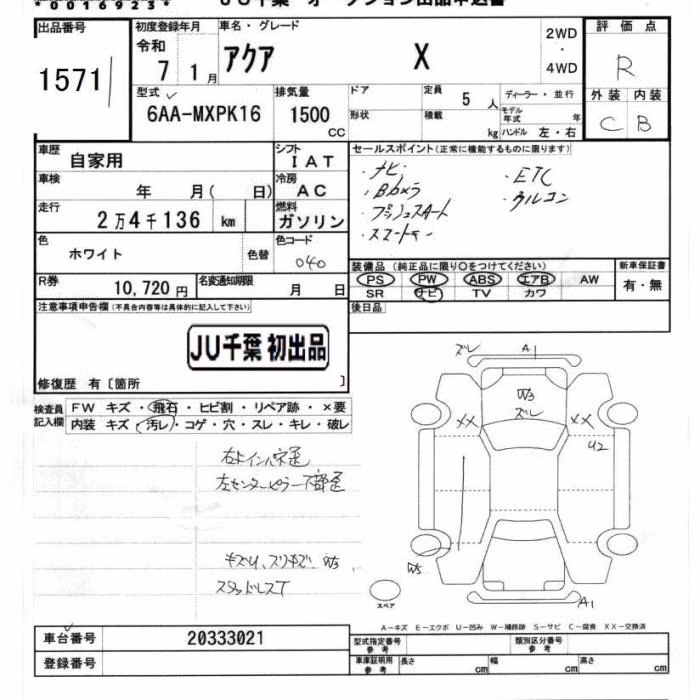 *00169293*
JU千葉 オークション出品申込書
出品番号
1571
初度登録年月
令和
7 1月
車名・グレード
アクア X
2WD
・
4WD
評価点
R
外装 内装
C B
型式
6AA-MXPK16
排気量
1500
CC
ドア
形状
定員
5人
積載
kg
ディーラー・並行
モデル年式 年
ハンドル 左・右
車歴
自家用
シフト
IAT
車検
年 月( 日)
冷房
AC
走行
2万4千136 km
燃料
ガソリン
色
ホワイト
色替
色コード
040
R券
10,720円
名変通知期限
月 日
セールスポイント(正常に機能するものに限ります)
・ナビ
・Bカメラ
・プッシュスタート
・スマートキー
・ETC
・クルコン
装備品(純正品に限り○をつけてください)
PS PW ABS エアB AW
SR ナビ TV カワ
新車保証書
有・無
後日品
注意事項申告欄(不具合内容等は具体的に記入して下さい)
JU千葉 初出品
修復歴 有〔箇所 〕
検査員記入欄
FW キズ・飛石・ヒビ割・リペア跡・×要
内装 キズ・汚レ・コゲ・穴・スレ・キレ・破レ
右ドインパネ歪
左センターピラー下部歪
キズU、スリキズ、W5
スタッドレスT
ズレ
A1
W3
ズレ
XX
XX
U2
W5
A1
スペア
A-キズ E-エクボ U-凹み W-補修跡 S-サビ C-腐食 XX-交換済
車台番号
20333021
登録番号
型式指定番号
参考
類別区分番号
参考
車庫証明用
参考
長さ cm
幅 cm
高さ cm